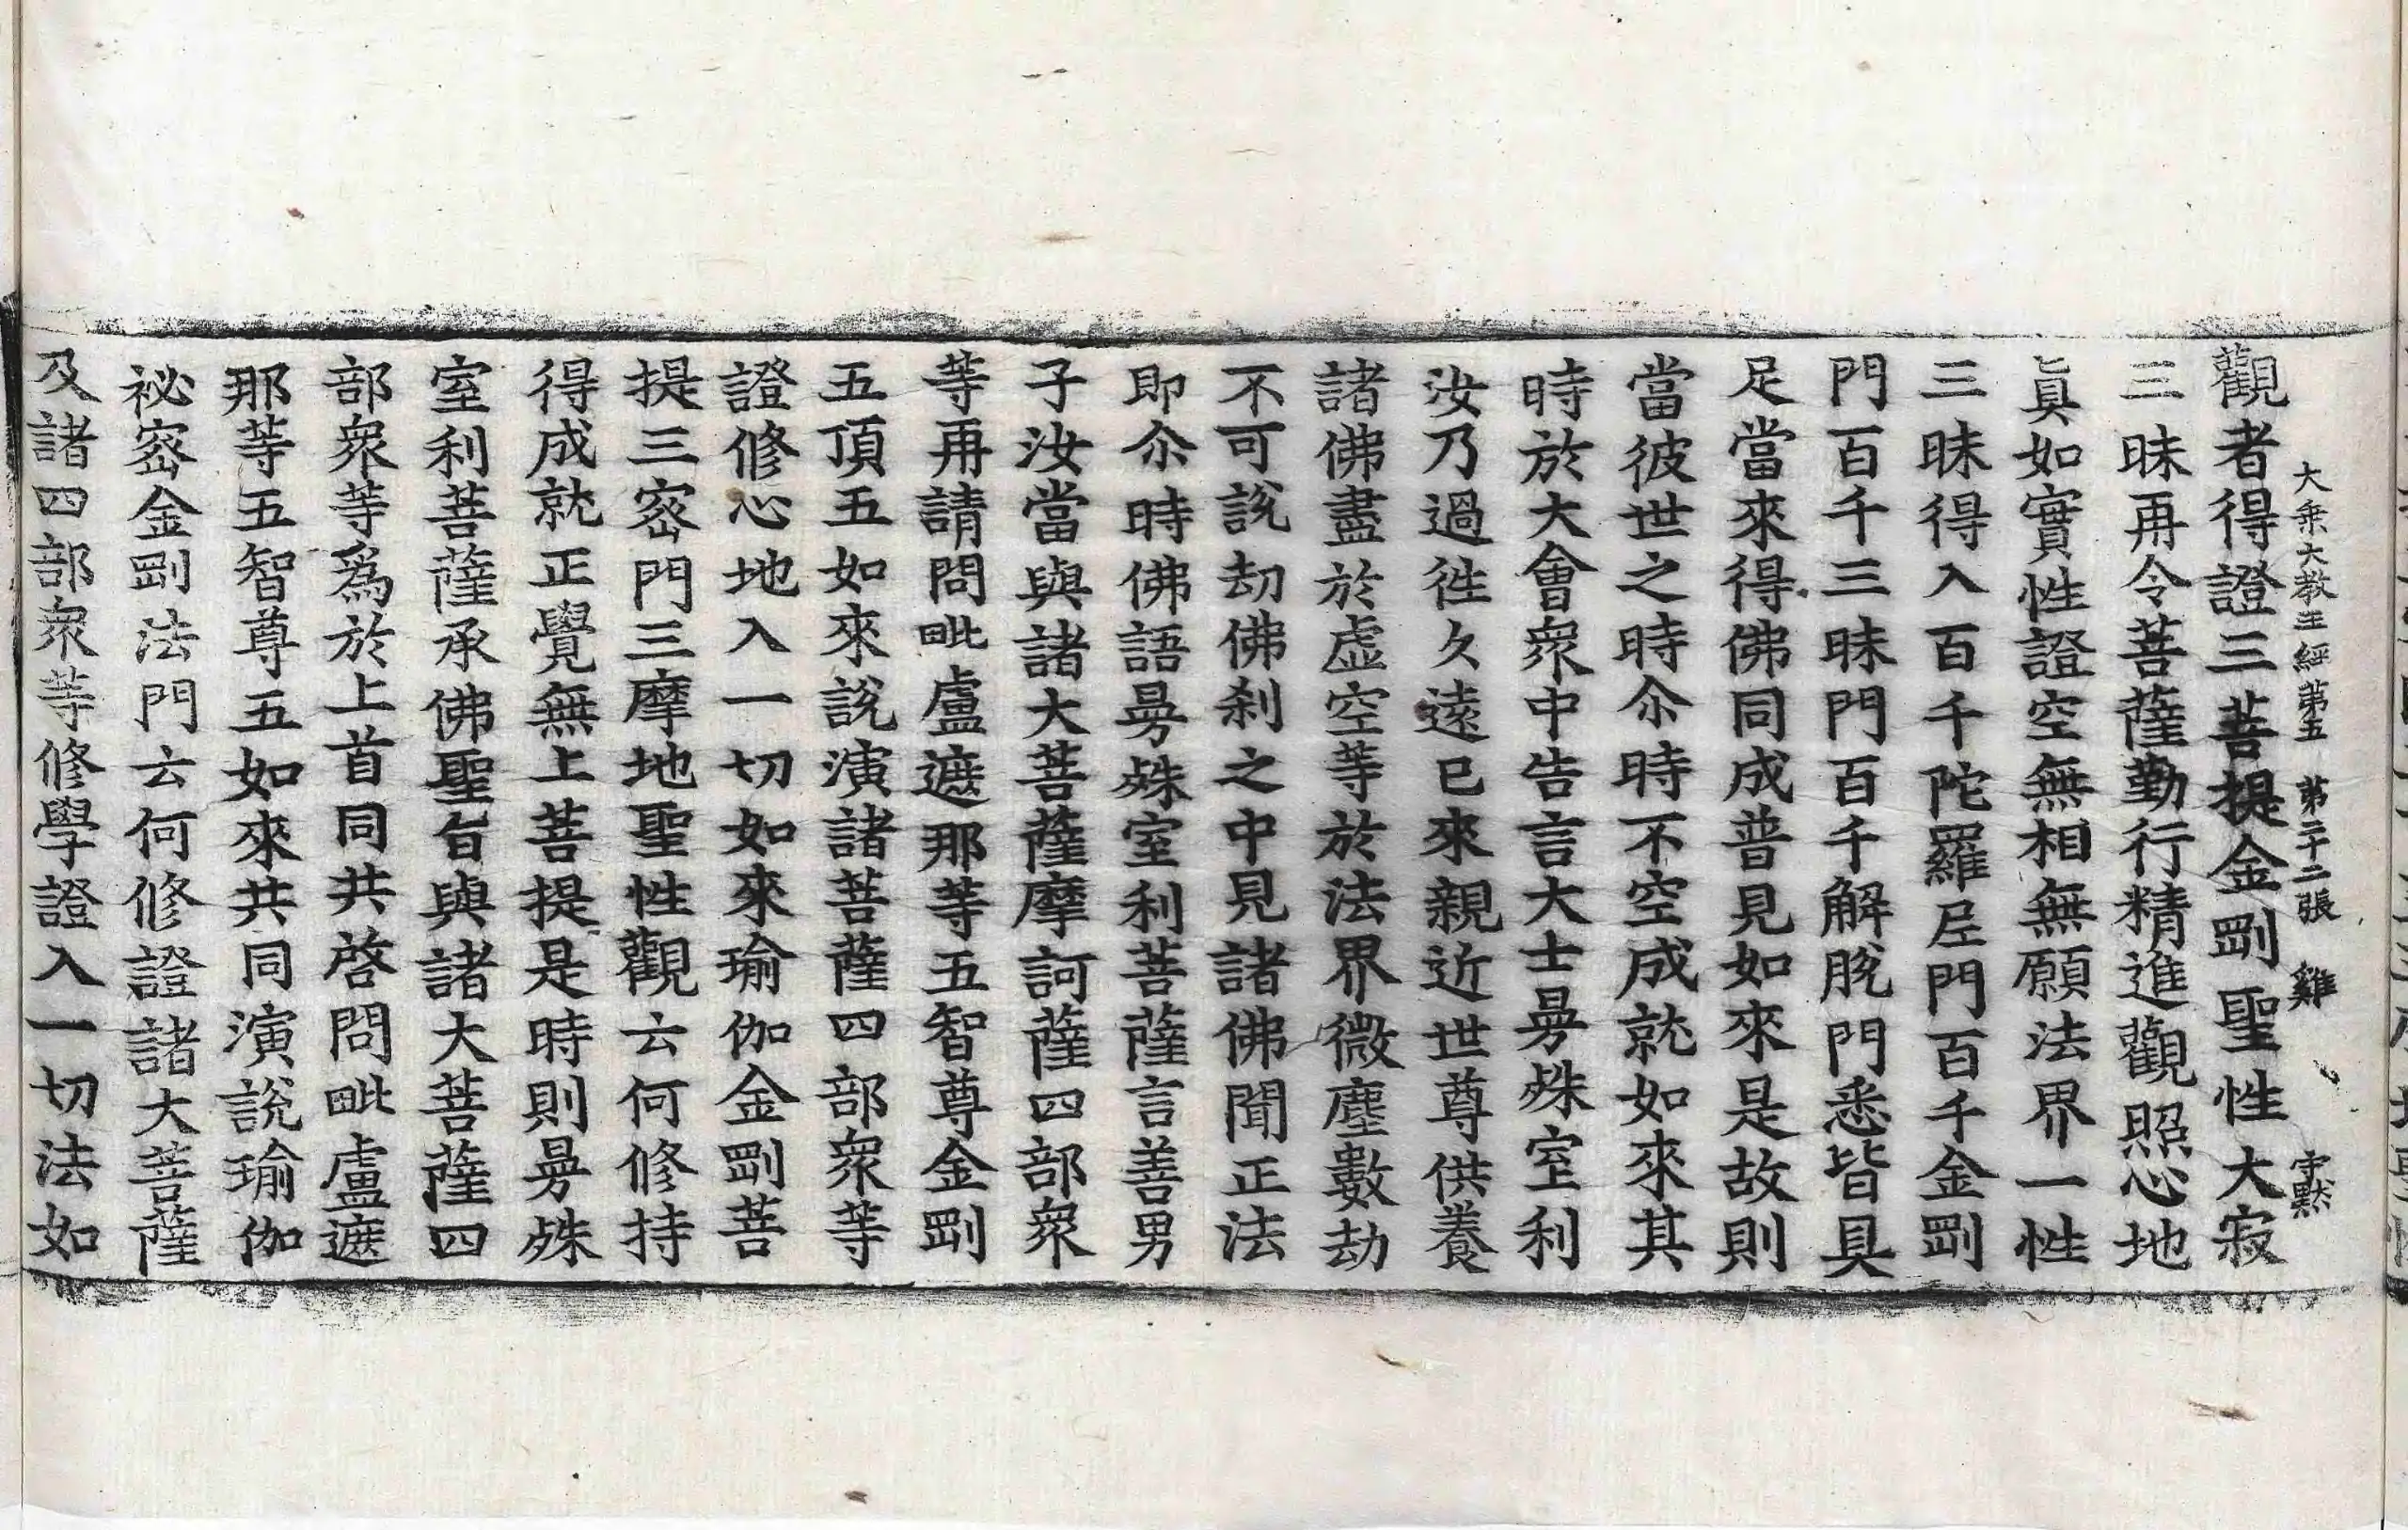 大乗大教王經第五　第二十二張　雞　守㸃
觀者得證三菩提金剛聖性大寂
三昧再令菩薩勤行精進觀照心地
眞如實性證空無相無願法界一性
三昧得入百千陀羅尼門百千金剛
門百千三昧門百千解脫門悉皆具
足當來得佛同成普見如來是故則
當彼世之時尒時不空成就如來其
時於大會衆中告言大士曼殊室利
汝乃過徃久遠已來親近世尊供養
諸佛盡於虛空等於法界微塵數劫
不可説劫佛刹之中見諸佛聞正法
即尒時佛語曼殊室利菩薩言善男
子汝當與諸大菩薩摩訶薩四部衆
等再請問毗盧遮那等五智尊金剛
五頂五如來説演諸菩薩四部衆等
證修心地入一切如來瑜伽金剛菩
提三密門三摩地聖性觀云何修持
得成就正覺無上菩提是時則曼殊
室利菩薩承佛聖旨與諸大菩薩四
部衆等爲於上首同共啓問毗盧遮
那等五智尊五如來共同演説瑜伽
祕密金剛法門云何修證諸大菩薩
及諸四部衆等修學證入一切法如